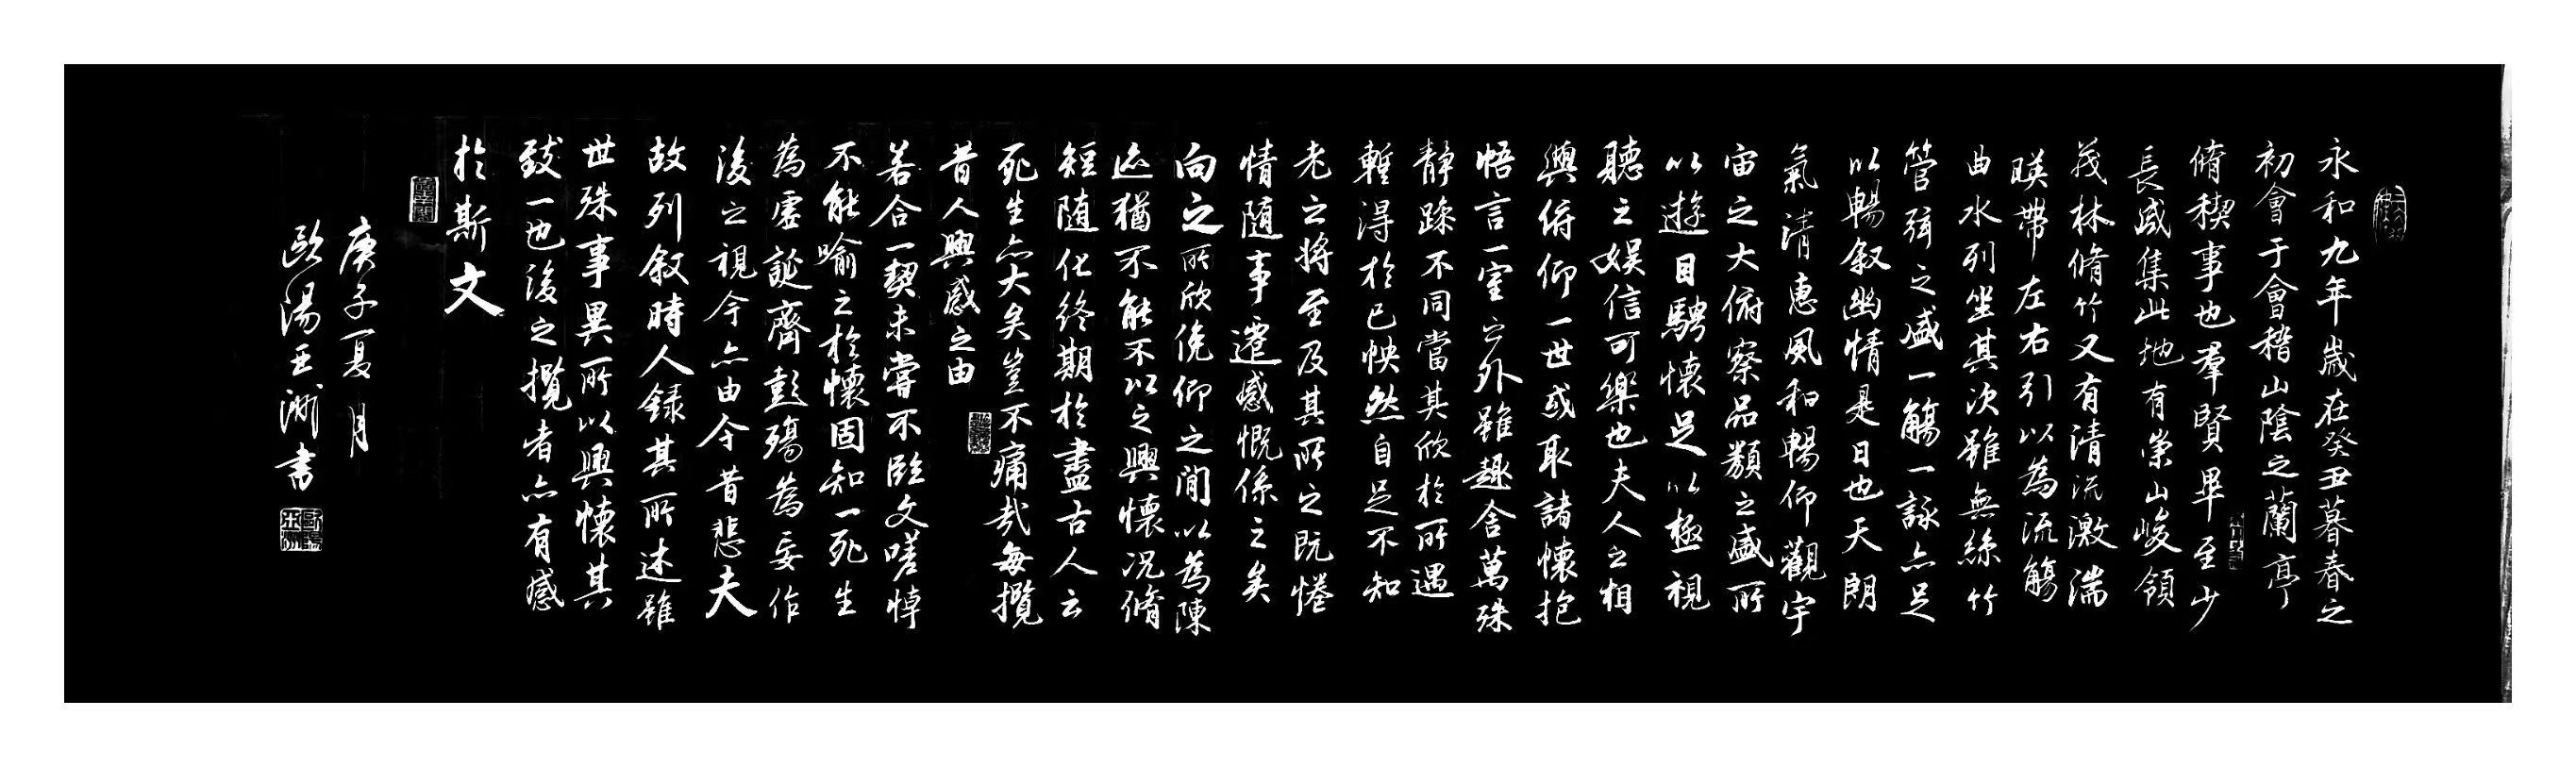 永和九年歲在癸丑暮春之
初會于會稽山陰之蘭亭
脩稧事也羣賢畢至少
長咸集此地有崇山峻領
茂林脩竹又有清流激湍
暎帶左右引以為流觴
曲水列坐其次雖無絲竹
管弦之盛一觴一詠亦足
以暢叙幽情是日也天朗
氣清惠風和暢仰觀宇
宙之大俯察品類之盛所
以遊目騁懷足以極視
聽之娛信可樂也夫人之相
與俯仰一世或取諸懷抱
悟言一室之外雖趣舍萬殊
静躁不同當其欣於所遇
蹔得於己怏然自足不知
老之將至及其所之既惓
情随事遷感慨係之矣
向之所欣俛仰之閒以為陳
迹猶不能不以之興懷况脩
短随化終期於盡古人云
死生亦大矣豈不痛哉每攬
昔人興感之由
若合一契未嘗不臨文嗟悼
不能喻之於懷固知一死生
為虛誕齊彭殤為妄作
後之視今亦由今昔悲夫
故列叙時人録其所述雖
世殊事異所以興懷其
致一也後之攬者亦有感
於斯文
庚子夏月
歐陽玉洲書